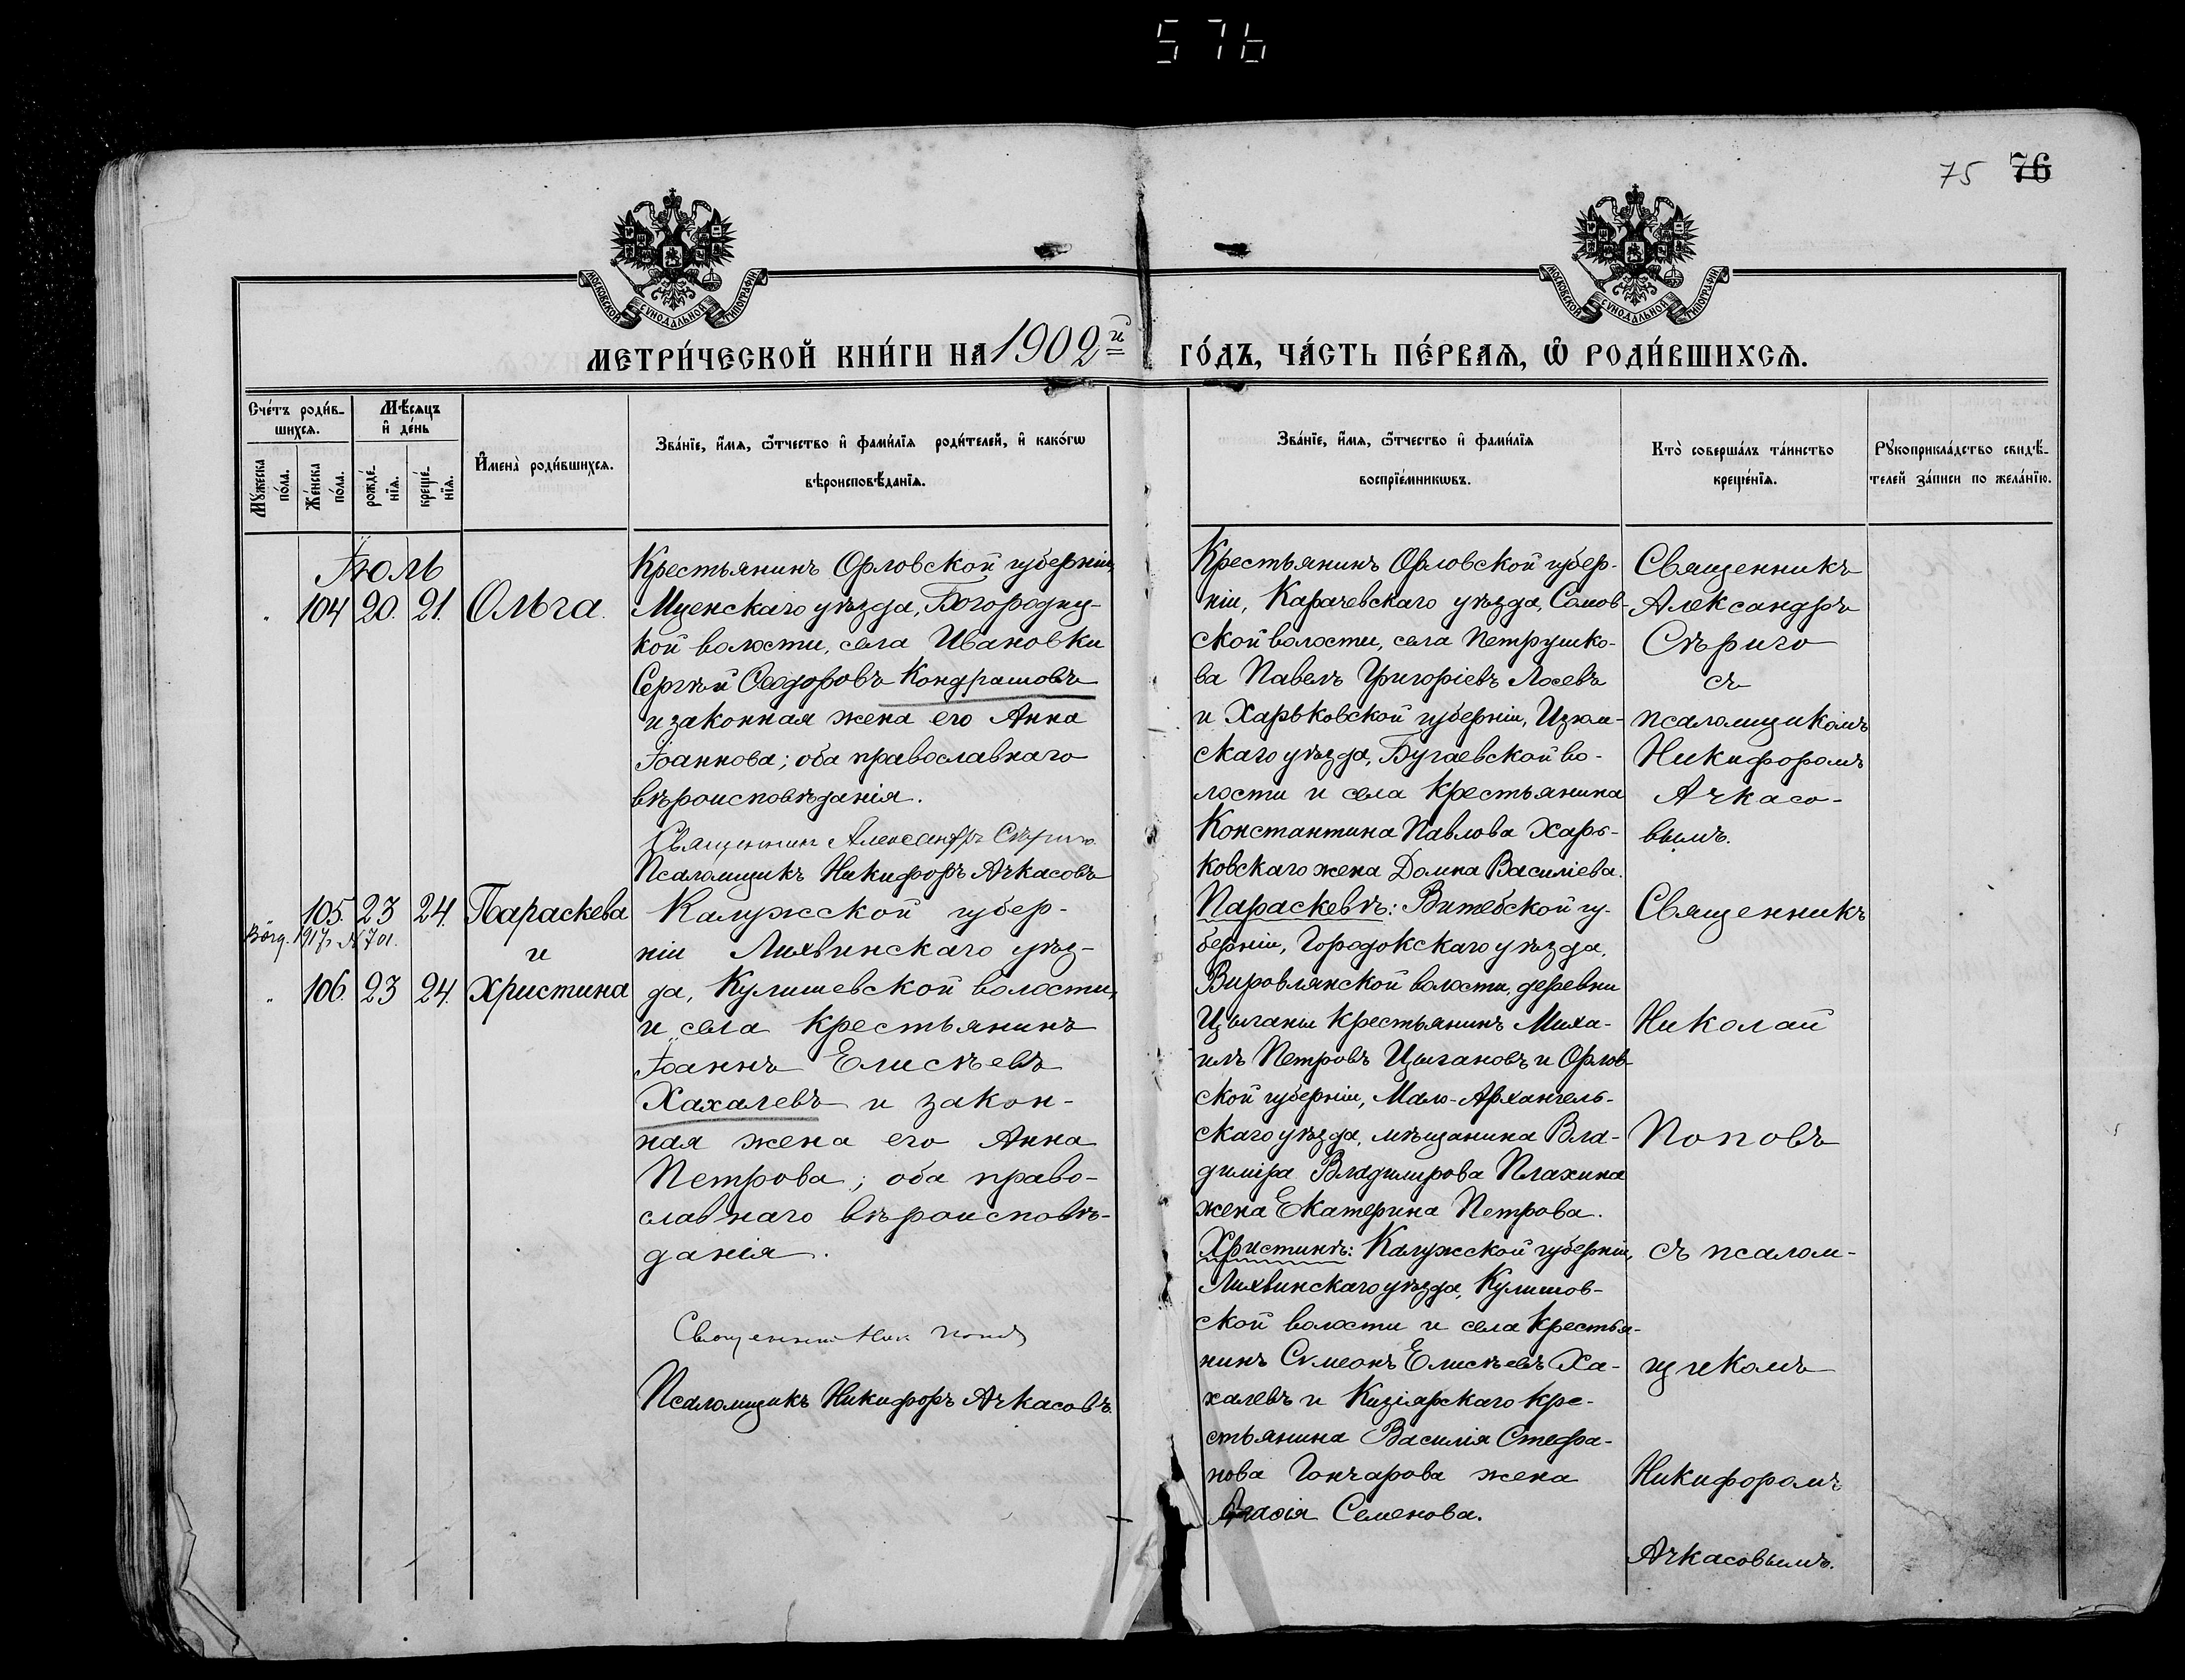 576
75 76
МОСКОВСКОЙ СѴНОДАЛЬНОЙ ТИПОГРАФІИ
МОСКОВСКОЙ СѴНОДАЛЬНОЙ ТИПОГРАФІИ
МЕТРИ́ЧЕСКОЙ КНИ́ГИ НА 1902й ГО́ДЪ, ЧА́СТЬ ПЕ́РВАѦ, Ѡ҆ РОДИ́ВШИХСѦ.
Сче́тъ роди́в-
шихсѧ.
Мꙋ́жеска
по́ла.
Же́нска
по́ла.
Мѣ́сѧцъ
и҆ де́нь
рожде́-
нїѧ.
креще́-
нїѧ.
И҆мена̀ роди́вшихсѧ.
Зва́нїе, и҆́мѧ, ѻ҆́тчество и҆ фами́лїѧ роди́телей, и҆ како́гѡ
вѣроисповѣ́данїѧ.
Зва́нїе, и҆́мѧ, ѻ҆́тчество и҆ фами́лїѧ
воспрїе́мникѡвъ.
Кто̀ соверша́лъ та́инство
креще́нїѧ.
Рꙋкоприкла́дство свидѣ́-
телей за́писи по жела́нїю.
Іюль
104 20. 21. Ольга.
Крестьянинъ Орловской губерніи,
Мценскаго уѣзда, Богородиц-
кой волости, села Ивановки
Сергѣй Ѳеодоровъ Кондрашовъ
и законная жена его Анна
Іоаннова; оба православнаго
вѣроисповѣданія.
Священникъ Александръ Сѣриго
Псаломщикъ Никифоръ Ачкасовъ
Крестьянинъ Орловской губер-
ніи, Карачевскаго уѣзда, Самов-
ской волости, села Петрушко-
ва Павелъ Григоріевъ Лосевъ
и Харьковской губерніи, Изюм-
скаго уѣзда, Бугаевской во-
лости и села крестьянина
Константина Павлова Харь-
ковскаго жена Домна Василіева.
Священникъ
Александръ
Сѣриго
съ
псаломщикомъ
Никифоромъ
Ачкасо-
вымъ.
105. 23 24. Параскева
1917г. № 701.
и
106. 23 24. Христина
Калужской губер-
ніи Лихвинскаго уѣз-
да, Кулишевской волости,
и села крестьянинъ
Іоаннъ Елисѣевъ
Хахалевъ и закон-
ная жена его Анна
Петрова; оба право-
славнаго вѣроисповѣ-
данія.
Священник Ник Попов
Псаломщикъ Никифоръ Ачкасовъ.
Параскевѣ: Витебской гу-
берніи, Городокскаго уѣзда,
Вировлянской волости, деревни
Цыганы крестьянинъ Миха-
илъ Петровъ Цыгановъ и Орлов-
ской губерніи, Мало-Архангель-
скаго уѣзда, мѣщанина Вла-
диміра Владимірова Плахина
жена Екатерина Петрова.
Христинѣ: Калужской губерніи,
Лихвинскаго уѣзда, Кулишов-
ской волости и села крестья-
нинъ Симеонъ Елисѣевъ Ха-
халевъ и Кизіярскаго кре-
стьянина Василія Стефа-
нова Гончарова жена
Семенова.
Священникъ
Николай
Поповъ
съ псалом-
щикомъ
Никифоромъ
Ачкасовымъ.